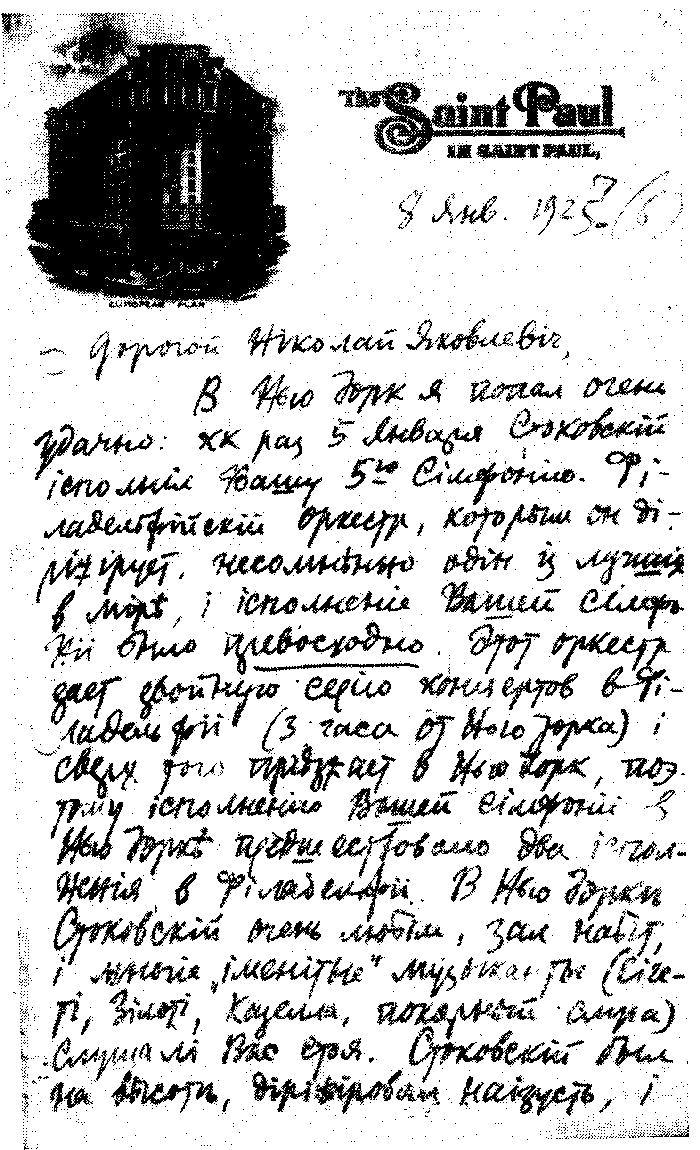 The Saint Paul
IN SAINT PAUL,
EUROPEAN PLAN
8 Янв. 192 (6)
Дорогой Ніколай Яковлевіч,
В Нью Йорк я попал очень
удачно: как раз 5 Января Стоковскій
ісполніл Вашу 5ую Сімфонію. Фі-
ладельфійскій оркестр, которым он ді-
ріжірует, несомнѣнно одін із лучшіх
в мірѣ, і ісполненіе Вашей Сімфо-
ніі было превосходно. Этот оркестр
дает двойную серію концертов в Фі-
ладельфіі (3 часа от Нью Йорка) і
сверх того пріѣзжает в Нью Йорк, поэ-
тому ісполненію Вашей Сімфоніі в
Нью Йоркѣ предшествовало два іспол-
ненія в Філадельфіі. В Нью Йоркѣ
Стоковскій очень любім, зал набіт,
і многіе „іменітые" музыканты (Сіге-
ті, Зілоті, Казелла, покорный слуга)
слушалі Вас . Стоковскій был
на высотѣ, діріжіровал наізусть, і